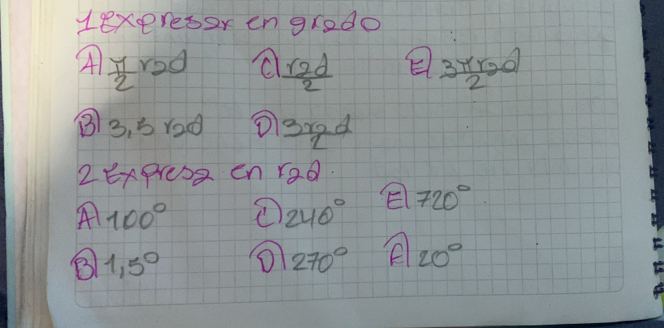 1 Expresar en grado
A) π/2 rad C) rad/2 E) 3π rad/2
B) 3,5 rad D) 3rad/2
2 Expresa en rad.
A) 100° C) 240° E) 720°
B) 1,5° D) 270° F) 20°